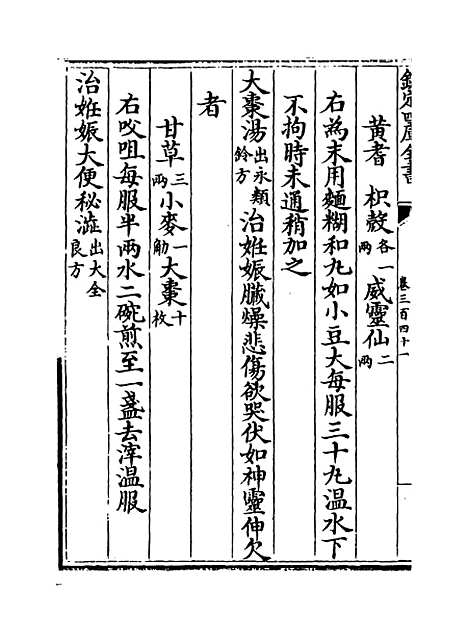 欽定四庫全書
卷三百四十一
黃耆　枳殼各一兩威靈仙二兩
右為末用麵糊和丸如小豆大每服三十丸温水下
不拘時未通稍加之
大棗湯出永類鈐方治姙娠臟燥悲傷欲哭伏如神靈伸欠
者
甘草三兩小麥一觔大棗十枚
右㕮咀每服半兩水二碗煎至一盞去滓温服
治姙娠大便秘澁出大全良方